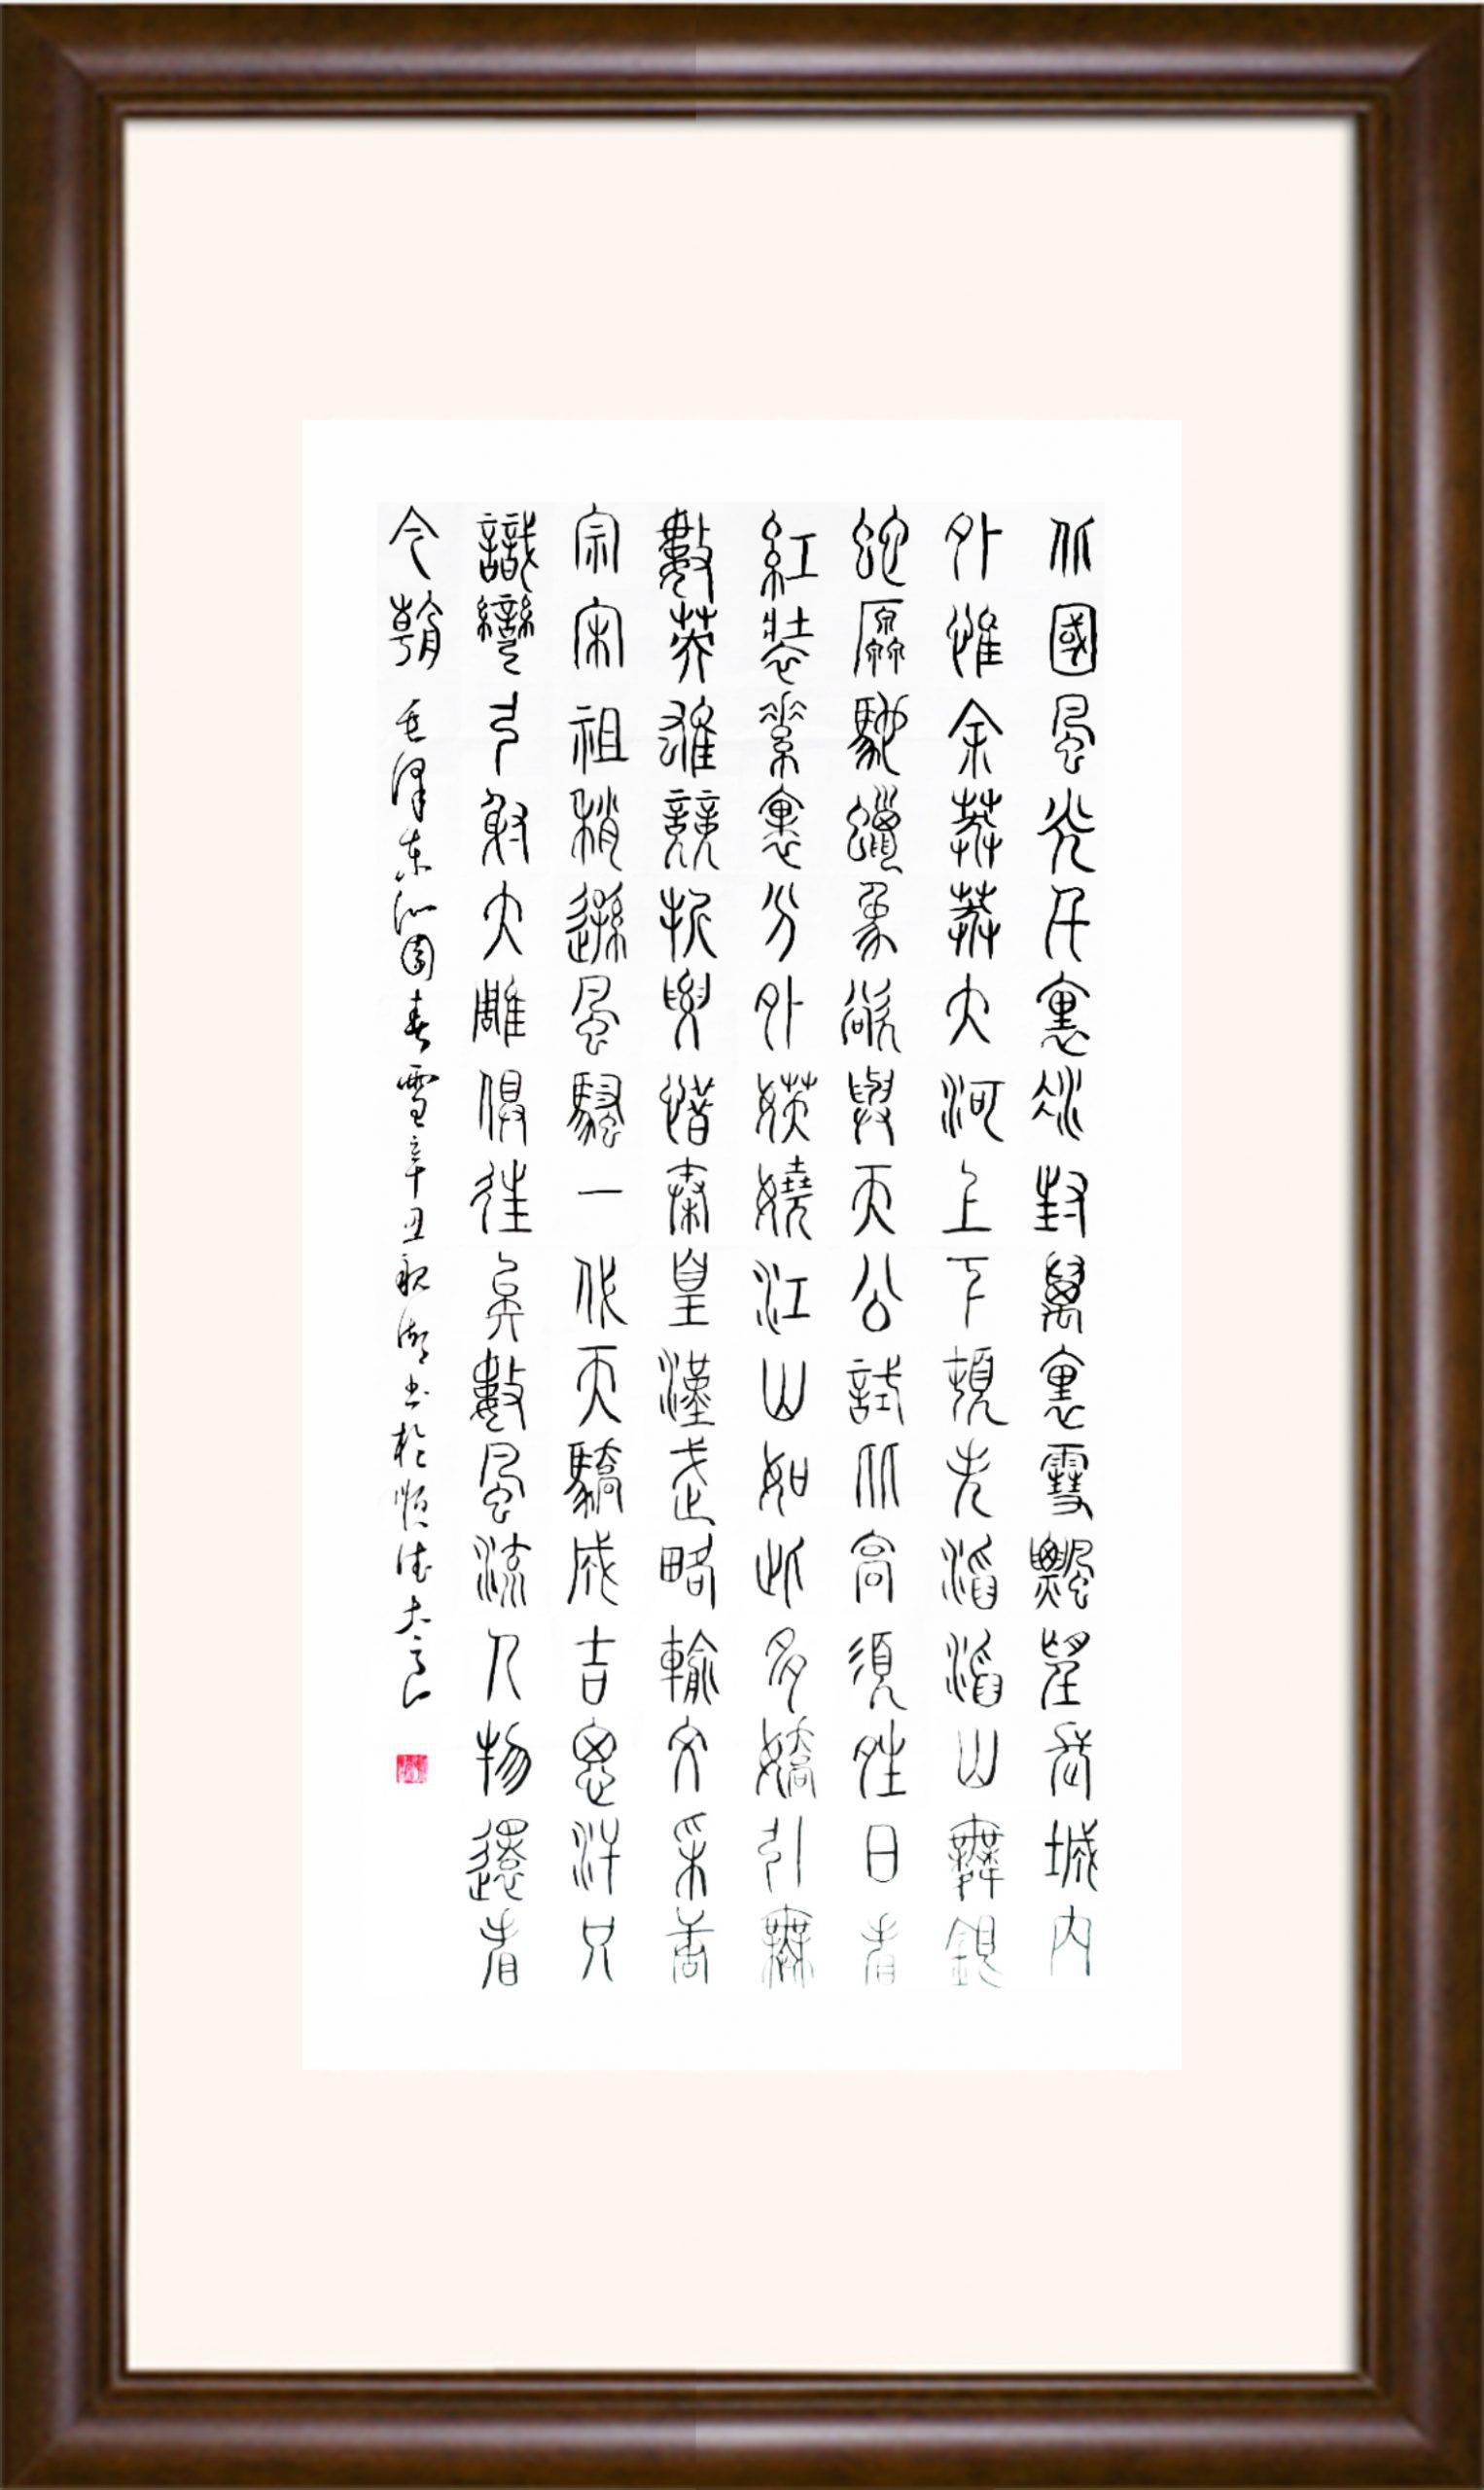 北國風光千裏冰封萬裏雪飄望長城內
外惟余莽莽大河上下頓失滔滔山舞銀
蛇原馳蠟象欲與天公試比高須晴日看
紅裝素裹分外妖嬈江山如此多嬌引無
數英雄競折腰惜秦皇漢武略輸文采唐
宗宋祖稍遜風騷一代天驕成吉思汗只
識彎弓射大雕俱往矣數風流人物還看
今朝 毛澤东沁園春雪辛丑书於順德大良